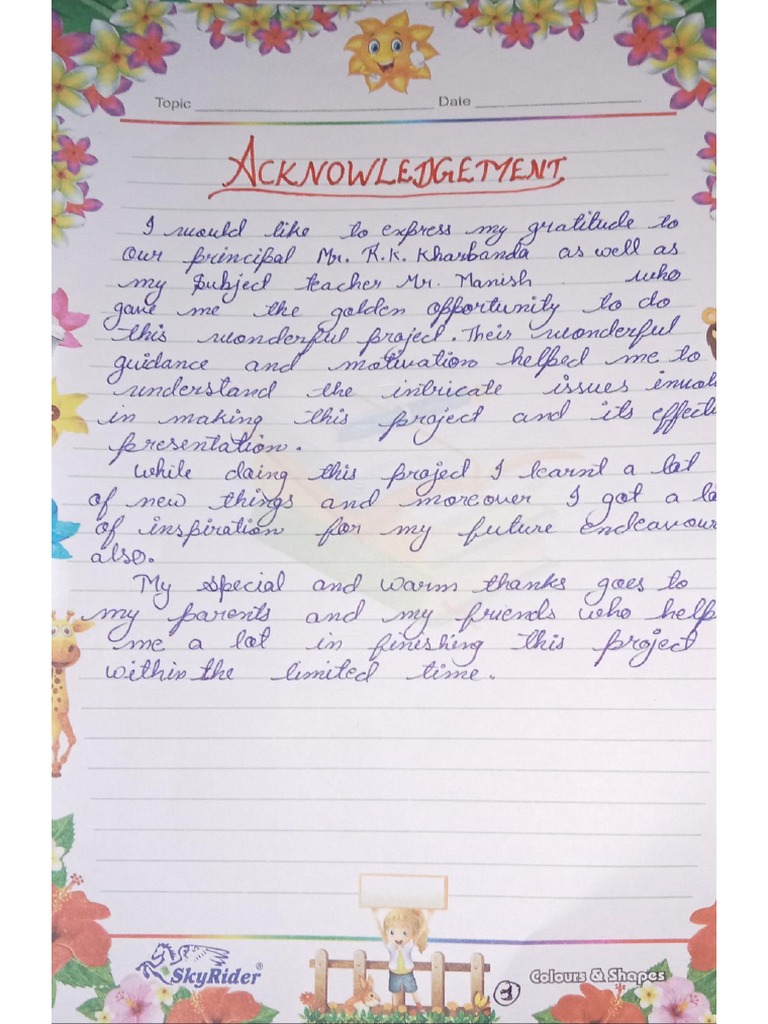 Topic
Date
ACKNOWLEDGEMENT
I would like to express my gratitude to
our principal Mr. R.K. Kharbanda as well as
my Subject teacher Mr. Manish . who
gave me the golden opportunity to do
this wonderful project. Their wonderful
guidance and motivation helped me to
understand the intricate issues involv
in making this project and its effecti
presentation.
While doing this project I learnt a lot
of new things and moreover I got a lo
of inspiration for my future endeavour
also.
My special and warm thanks goes to
my parents and my friends who help
me a lot in finishing this project
within the limited time.
SkyRider®
Colours & Shapes